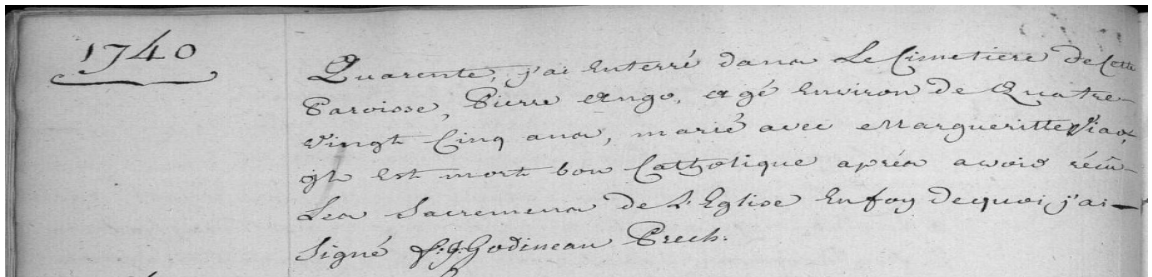 1740
Quarente, j'ai Enterré dans Le Cimetiere de Cette
Paroisse, Pierre Ango, agé Environ de Quatre-
vingt Cinq ans, marié avec Margueritte
il Est mort bon Catholique après avoir réçu-
Les Sacremens de L'Eglise En foy dequoi j'ai
Signé f: J. Godineau Prech.